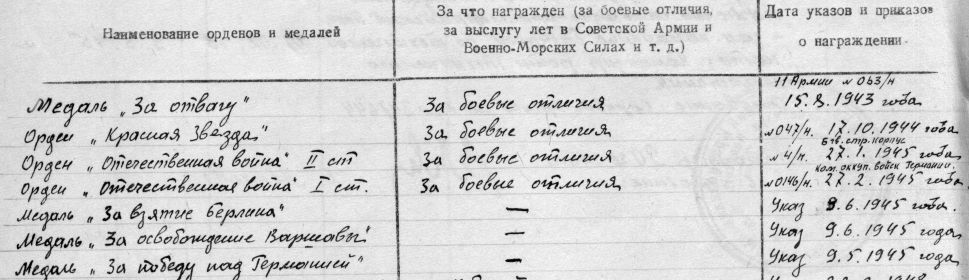 Наименование орденов и медалей
За что награжден (за боевые отличия,
за выслугу лет в Советской Армии и
Военно-Морских Силах и т. д.)
Дата указов и приказов
о награждении.
11 Армии № 063/н
Медаль „За отвагу" За боевые отличия 15.8.1943 года
Орден „Красная Звезда" За боевые отличия №047/н. 17.10.1944 года
6 гв. стр. корпус
Орден „Отечественная война" II ст За боевые отличия №4/н. 27.1.1945 года
ком. оккуп. войск Германии.
Орден „Отечественная война" I ст. За боевые отличия №0146/н. 27.2.1945 года.
Медаль „За взятие Берлина" — Указ 9.6.1945 года.
Медаль „За освобождение Варшавы" — Указ 9.6.1945 года
Медаль „За победу над Германией" — Указ 9.5.1945 года